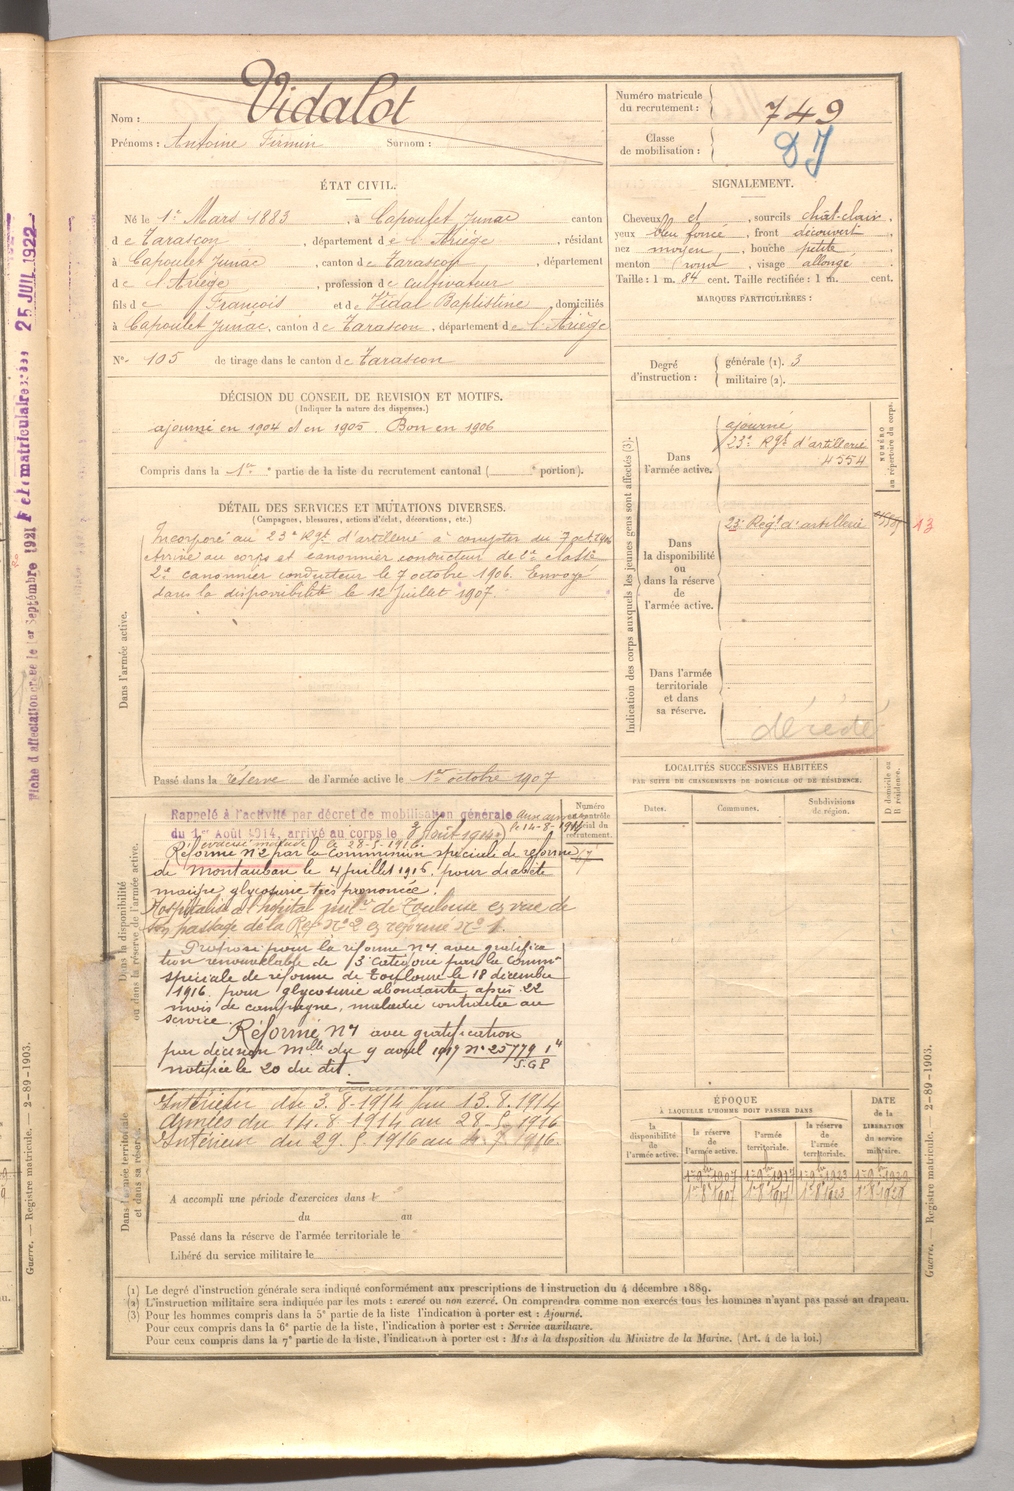 Fiche d'affectation dans le 1er Septembre 1921 25 JUIL 1922
Nom : Vidalot
Prénoms : Antoine Firmin Surnom :
Numéro matricule du recrutement : 749
Classe de mobilisation :
ÉTAT CIVIL.
Né le 1er Mars 1883, à Capoulet Junac canton
de Tarascon, département de l'Ariège, résidant
à Capoulet Junac, canton de Tarascon, département
de l'Ariège, profession de cultivateur
fils de François et de Vidal Baptistine, domiciliés
à Capoulet Junac, canton de Tarascon, département de l'Ariège
N° 105 de tirage dans le canton de Tarascon
SIGNALEMENT.
Cheveux et, sourcils chât-clair,
yeux bleu foncé, front découvert,
nez moyen, bouche petite,
menton rond, visage allongé.
Taille : 1 m. 84 cent. Taille rectifiée : 1 m. cent.
MARQUES PARTICULIÈRES :
Degré d'instruction : générale (1). 3
militaire (2).
DÉCISION DU CONSEIL DE REVISION ET MOTIFS.
(Indiquer la nature des dispenses.)
ajourné en 1904 et en 1905. Bon en 1906
Compris dans la 1re partie de la liste du recrutement cantonal ( portion).
DÉTAIL DES SERVICES ET MUTATIONS DIVERSES.
(Campagnes, blessures, actions d'éclat, décorations, etc.)
Dans l'armée active.
Incorporé au 23e Rgt d'artillerie à compter du 7 oct. 1906
Arrivé au corps et canonnier conducteur de 2e classe
2e canonnier conducteur le 7 octobre 1906. Envoyé
dans la disponibilité le 12 Juillet 1907.
Passé dans la réserve de l'armée active le 1er octobre 1907
Indication des corps auxquels les jeunes gens sont affectés (3).
NUMÉRO au répertoire du corps.
Dans l'armée active.
ajourné
23e Rgt d'artillerie
4554
Dans la disponibilité ou dans la réserve de l'armée active.
23e Regt d'artillerie 13
Dans l'armée territoriale et dans sa réserve.
décédé
LOCALITÉS SUCCESSIVES HABITÉES
PAR SUITE DE CHANGEMENTS DE DOMICILE OU DE RÉSIDENCE.
Dates. Communes. Subdivisions de région. D domicile ou R résidence.
Dans la disponibilité ou dans la réserve de l'armée active.
Rappelé à l'activité par décret de mobilisation générale aux armées
du 1er Août 1914, arrivé au corps le 3 Août 1914, le 14-8-1914
évacué malade le 28-5-1916.
Réformé N°2 par la Commission spéciale de réforme
de Montauban le 4 juillet 1916, pour diabète
maigre glycosurie très prononcée.
Hospitalisé à l'hôpital milre de Toulouse en vue de
son passage de la Ref n° 2 en réformé n° 1.
Proposé pour la réforme N°1 avec gratifica
tion renouvelable de 3 catégorie par la Common
spéciale de réforme de Toulouse le 18 décembre
1916. pour glycosurie abondante, après 22
mois de campagne, maladie contractée au
service.
Réformé N°1 avec gratification
par décision mlle du 9 avril 1917 N° 25779 1"
S.G.P
notifiée le 20 du dit.
Numéro au contrôle spécial du recrutement.
Dans l'armée territoriale et dans sa réserve.
Intérieur du 3.8.1914 au 13.8.1914
Armées du 14.8.1914 au 28-5-1916
Intérieur du 29.5.1916 au 4.7.1916.
A accompli une période d'exercices dans l
du au
Passé dans la réserve de l'armée territoriale le
Libéré du service militaire le
ÉPOQUE
À LAQUELLE L'HOMME DOIT PASSER DANS
la disponibilité de l'armée active. la réserve de l'armée active. l'armée territoriale. la réserve de l'armée territoriale.
DATE de la LIBÉRATION du service militaire.
(1) Le degré d'instruction générale sera indiqué conformément aux prescriptions de l'instruction du 4 décembre 1889.
(2) L'instruction militaire sera indiquée par les mots : exercé ou non exercé. On comprendra comme non exercés tous les hommes n'ayant pas passé au drapeau.
(3) Pour les hommes compris dans la 5e partie de la liste l'indication à porter est : Ajourné.
Pour ceux compris dans la 6e partie de la liste, l'indication à porter est : Service auxiliaire.
Pour ceux compris dans la 7e partie de la liste, l'indication à porter est : Mis à la disposition du Ministre de la Marine. (Art. 4 de la loi.)
Guerre. — Registre matricule. 2-89-1903.
Guerre. — Registre matricule. 2-89-1903.